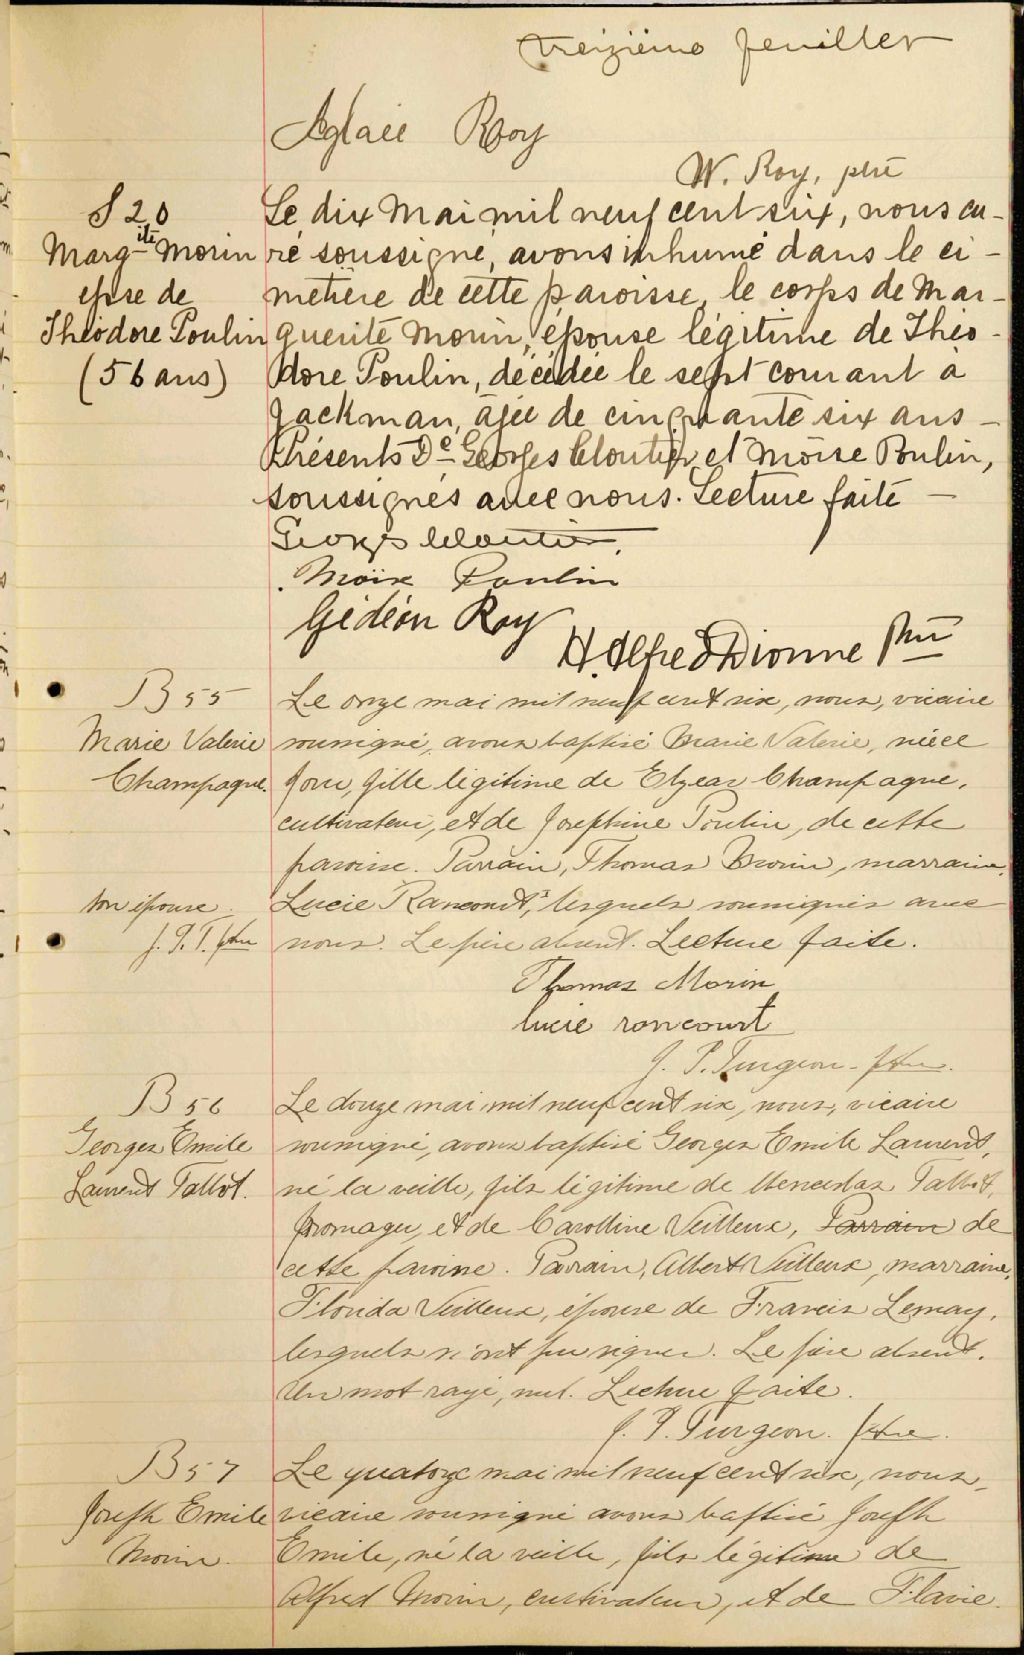 treizième feuillet
Aglaée Roy
W. Roy, ptre
S 20
Margite Morin
épse de
Théodore Poulin
(56 ans)
Le dix mai mil neuf cent six, nous cu-
ré soussigné, avons inhumé dans le ci-
metière de cette paroisse, le corps de Mar-
guerite Morin, épouse légitime de Théo-
dore Poulin, décédée le sept courant à
Jackman, âgée de cinquante six ans -
Présents De Georges Cloutier, et Moïse Poulin,
soussignés avec nous. Lecture faite -
Georges Cloutier
Moïse Poulin
Gédéon Roy
H. Alfred Dionne Ptre
B 55
Marie Valerie
Champagne.
Le onze mai mil neuf cent six, nous, vicaire
soussigné, avons baptisé Marie Valerie, née ce
jour, fille légitime de Elzear Champagne,
cultivateur, et de Josephine Poulin, de cette
paroisse. Parrain, Thomas Morin, marraine,
Lucie Rancourt, lesquels soussignés avec
nous. Le père absent. Lecture faite.
son épouse.
J. P. T. ptre
Thomas Morin
lucie roncourt
J. P. Turgeon - ptre.
B 56
Georges Emile
Laurent Talbot.
Le douze mai mil neuf cent six, nous, vicaire
soussigné, avons baptisé Georges Emile Laurent,
né la veille, fils légitime de Wenceslas Talbot,
fromager, et de Carolline Veilleux, Parrain de
cette paroisse. Parrain, Albert Veilleux, marraine,
Florida Veilleux, épouse de Francis Lemay,
lesquels n'ont pu signer. Le père absent.
Un mot rayé, nul. Lecture faite.
J. P. Turgeon. ptre.
B 57
Joseph Emile
Morin.
Le quatorze mai mil neuf cent six, nous,
vicaire soussigné avons baptisé Joseph
Emile, né la veille, fils légitime de
Alfred Morin, cultivateur, et de Flavie